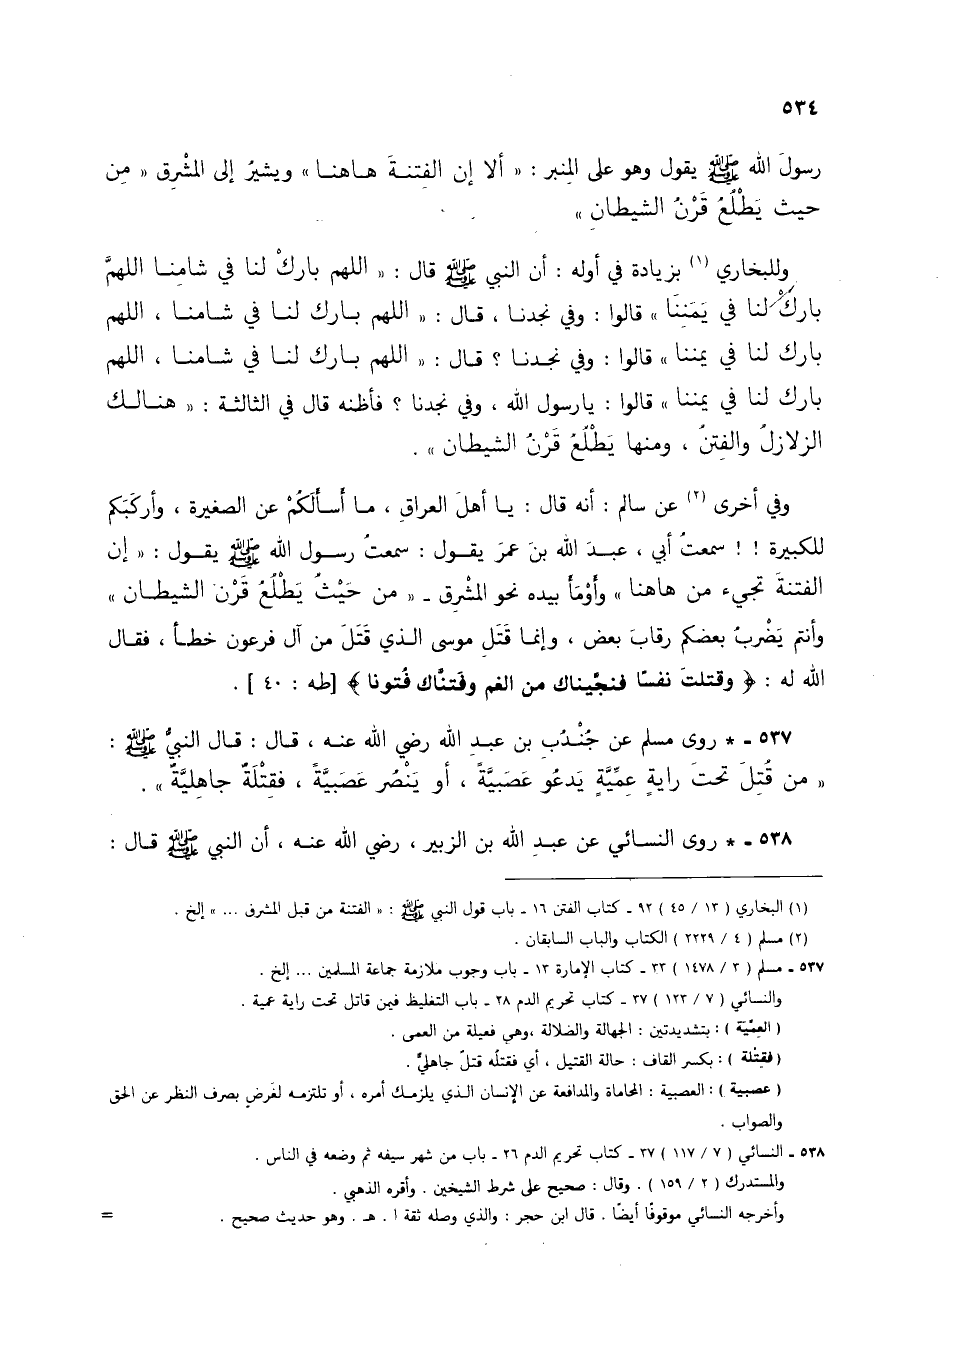 ٥٣٤
رسولَ الله ﷺ يقول وهو على المِنبر : « ألا إن الفِتنةَ هاهنا » ويشيرُ إلى المشْرِق « مِن
حيث يَطْلُعُ قَرْنُ الشيطانِ »
وللبخاري (١) بزيادة في أوله : أن النبي ﷺ قال : « اللهم باركْ لنا في شامِنا اللهمَّ
باركْ لنا في يَمَنِنَا » قالوا : وفي نجدنا ، قال : « اللهم بارك لنا في شامنا ، اللهم
بارك لنا في يمننا » قالوا : وفي نجدنا ؟ قال : « اللهم بارك لنا في شامنا ، اللهم
بارك لنا في يمننا » قالوا : يارسول الله ، وفي نجدنا ؟ فأظنه قال في الثالثة : « هنالك
الزلازلُ والفِتنُ ، ومنها يَطْلُعُ قَرْنُ الشيطان » .
وفي أخرى (٢) عن سالم : أنه قال : يا أهلَ العراقِ ، ما أَسأَلَكُمْ عن الصغيرة ، وأركَبَكم
للكبيرة ! ! سمعتُ أبي ، عبدَ الله بنَ عمرَ يقول : سمعتُ رسول الله ﷺ يقول : « إن
الفتنةَ تجيء من هاهنا » وأَوْمَأَ بيده نحو المشْرِق ـ « من حَيْثُ يَطْلُعُ قَرْنَ الشيطان »
وأنتم يَضْربُ بعضكم رقابَ بعض ، وإنما قَتَل موسى الذي قَتَلَ من آل فرعون خطأ ، فقال
الله له : ﴿ وقتلتَ نفسًا فنجَّيناك من الغم وفَتنَّاك فُتونا ﴾ [طه : ٤٠ ] .
٥٣٧ ـ * روى مسلم عن جُنْدُبِ بن عبد الله رضي الله عنه ، قال : قال النبيُّ ﷺ :
« من قُتِلَ تحتَ رايةٍ عِمِّيَّةٍ يَدعُو عَصَبيَّةً ، أو يَنْصُر عَصَبِيَّةً ، فقِتْلَةٌ جاهليَّةٌ » .
٥٣٨ ـ * روى النسائي عن عبدِ الله بن الزبير ، رضي الله عنه ، أن النبي ﷺ قال :
(١) البخاري ( ١٣ / ٤٥ ) ٩٢ ـ كتاب الفتن ١٦ ـ باب قول النبي ﷺ : « الفتنة من قبل المشرق ... » إلخ .
(٢) مسلم ( ٤ / ٢٢٢٩ ) الكتاب والباب السابقان .
٥٣٧ ـ مسلم ( ٣ / ١٤٧٨ ) ٣٣ ـ كتاب الإمارة ١٣ ـ باب وجوب ملازمة جماعة المسلمين ... إلخ .
والنسائي ( ٧ / ١٢٣ ) ٣٧ ـ كتاب تحريم الدم ٢٨ ـ باب التغليظ فيمن قاتل تحت راية عمية .
( العِمِّيَة ) : بتشديدتين : الجهالة والضلالة ،وهي فعيلة من العمى .
(فقِتْلة ) : بكسر القاف : حالة القتيل ، أي فقتلُه قتلٌ جاهليٌّ .
( عصبية ) : العصبية : المحاماة والمدافعة عن الإنسان الذي يلزمك أمره ، أو تلتزمه لغرضٍ بصرف النظر عن الحق
والصواب .
٥٣٨ ـ النسائي ( ٧ / ١١٧ ) ٣٧ ـ كتاب تحريم الدم ٢٦ ـ باب من شهر سيفه ثم وضعه في الناس .
والمستدرك ( ٢ / ١٥٩ ) . وقال : صحيح على شرط الشيخين . وأقره الذهبي .
وأخرجه النسائي موقوفًا أيضًا . قال ابن حجر : والذي وصله ثقة ا . هـ . وهو حديث صحيح . =